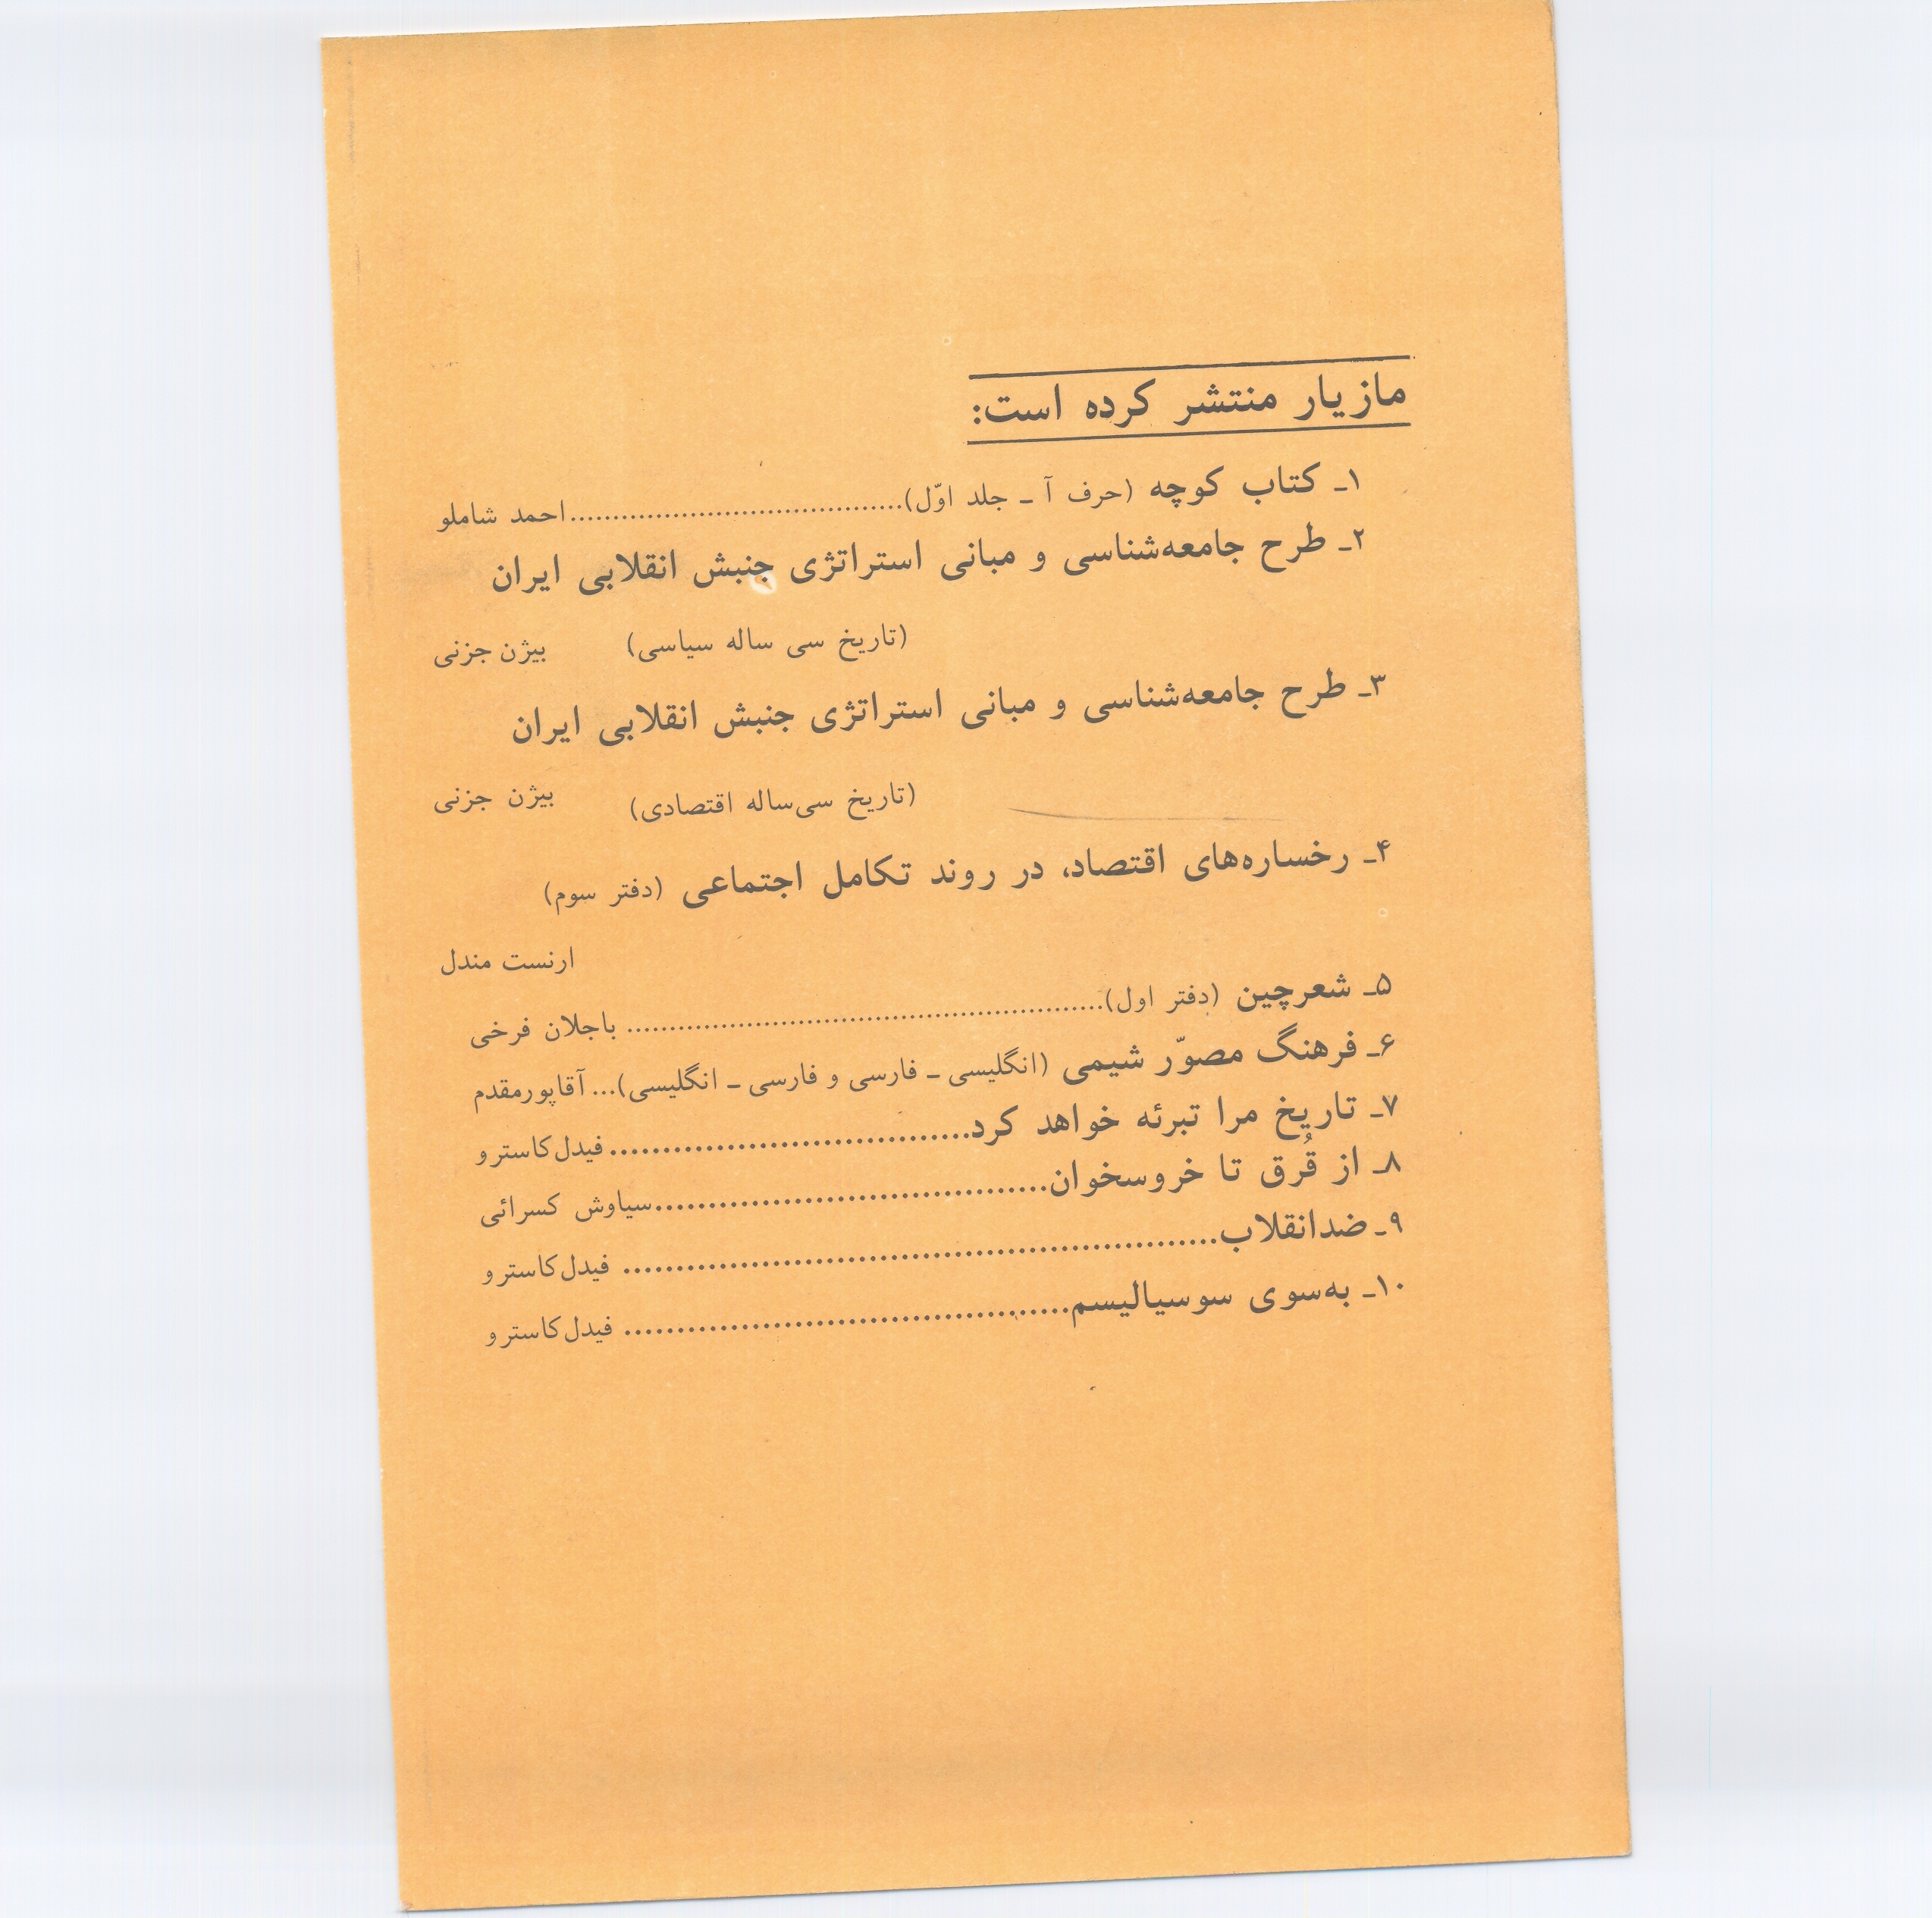 مازیار منتشر کرده است:
۱ـ کتاب کوچه (حرف آ ـ جلد اوّل)........................................احمد شاملو
۲ـ طرح جامعه‌شناسی و مبانی استراتژی جنبش انقلابی ایران
(تاریخ سی ساله سیاسی) بیژن جزنی
۳ـ طرح جامعه‌شناسی و مبانی استراتژی جنبش انقلابی ایران
(تاریخ سی‌ساله اقتصادی) بیژن جزنی
۴ـ رخساره‌های اقتصاد، در روند تکامل اجتماعی (دفتر سوم)
ارنست مندل
۵ـ شعرچین (دفتر اول)......................................................... باجلان فرخی
۶ـ فرهنگ مصوّر شیمی (انگلیسی ـ فارسی و فارسی ـ انگلیسی)... آقاپورمقدم
۷ـ تاریخ مرا تبرئه خواهد کرد..................................فیدل‌کاسترو
۸ـ از قُرق تا خروسخوان.....................................سیاوش کسرائی
۹ـ ضدانقلاب........................................................ فیدل‌کاسترو
۱۰ـ به‌سوی سوسیالیسم.......................................... فیدل‌کاسترو